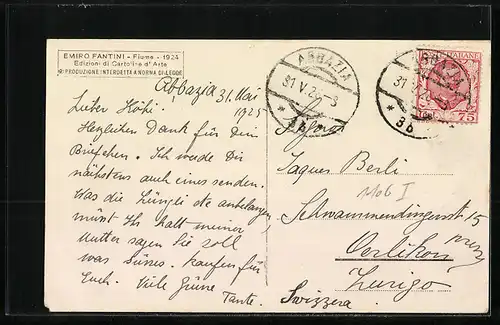 EMIRO FANTINI - Fiume - 1924
Edizioni di Cartoline d'Arte
RIPRODUZIONE INTERDETTA A NORMA DI LEGGE
Abbazia, 31. Mai
1925
Lieber Köbi.
Herzlichen Dank für Dein
Briefchen. Ich werde Dir
nächstens auch eines senden.
Was die anbelangen,
müsst Ihr halt meiner
Mutter sagen sie soll
was Süsses kaufen für
Euch. Viele Grüsse
Tante.
ABBAZIA
31 V. 25 - 8
* 3b *
ABBAZIA
31 V.
* 3b
ITALIANE
75
Signor
Jaques Berli
Schwammendingenstr 15
Oerlikon
Zurigo
Svizzera